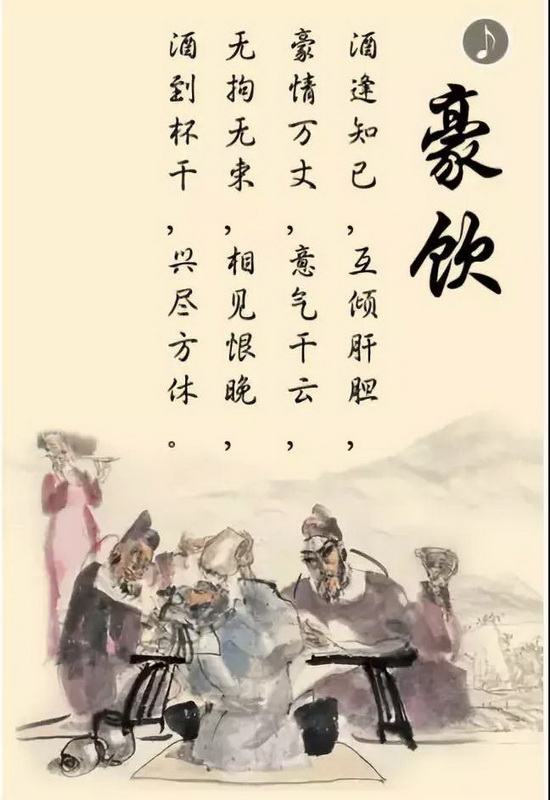 豪饮
酒逢知已,互倾肝胆,
豪情万丈,意气干云,
无拘无束,相见恨晚,
酒到杯干,兴尽方休。